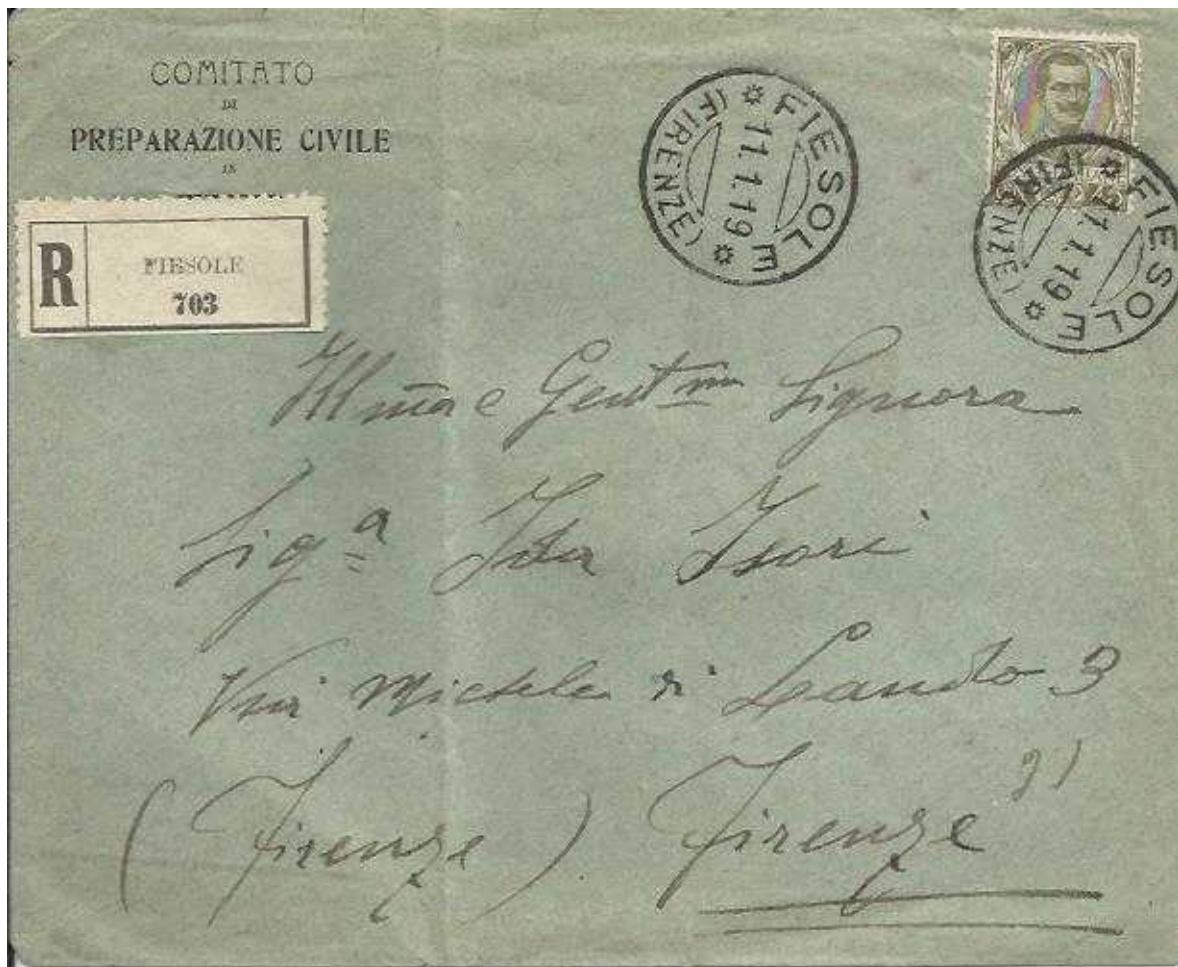 COMITATO
DI
PREPARAZIONE CIVILE
IN
R
FIESOLE
703
FIESOLE
(FIRENZE)
11.1.19
FIESOLE
(FIRENZE)
11.1.19
Illma e Gentma Signora
Siga Ida Isori
Via Michele di Lando 3
(Firenze) Firenze